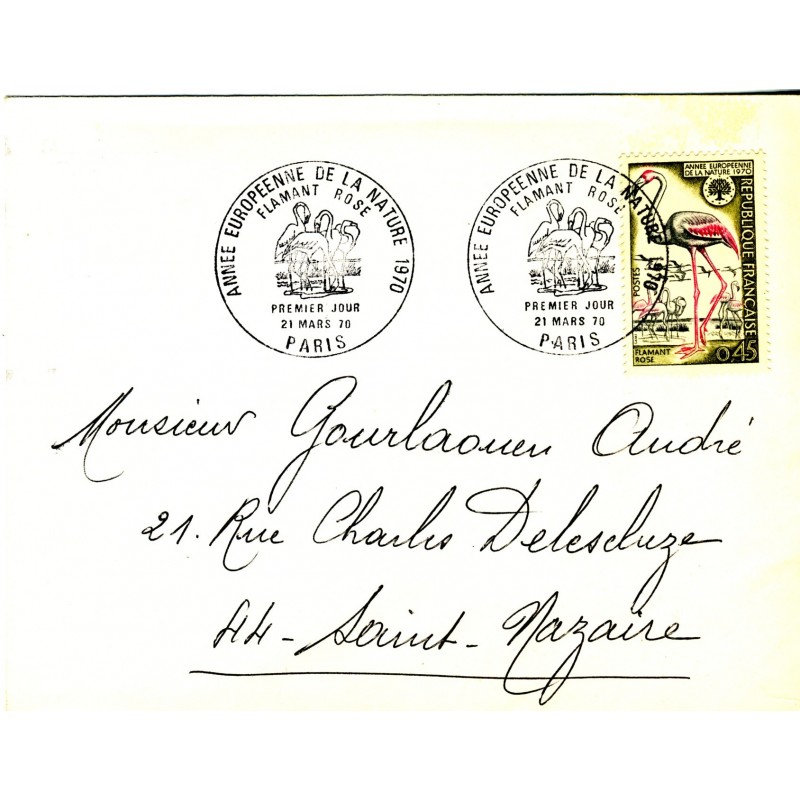 ANNEE EUROPEENNE DE LA NATURE 1970
FLAMANT ROSE
PREMIER JOUR
21 MARS 70
PARIS
ANNEE EUROPEENNE DE LA NATURE 1970
FLAMANT ROSE
PREMIER JOUR
21 MARS 70
PARIS
ANNEE EUROPEENNE
DE LA NATURE 1970
REPUBLIQUE FRANÇAISE
POSTES
FLAMANT
ROSE
0,45
Monsieur Gourlaouen André
21. Rue Charles Delescluze
44 - Saint - Nazaire